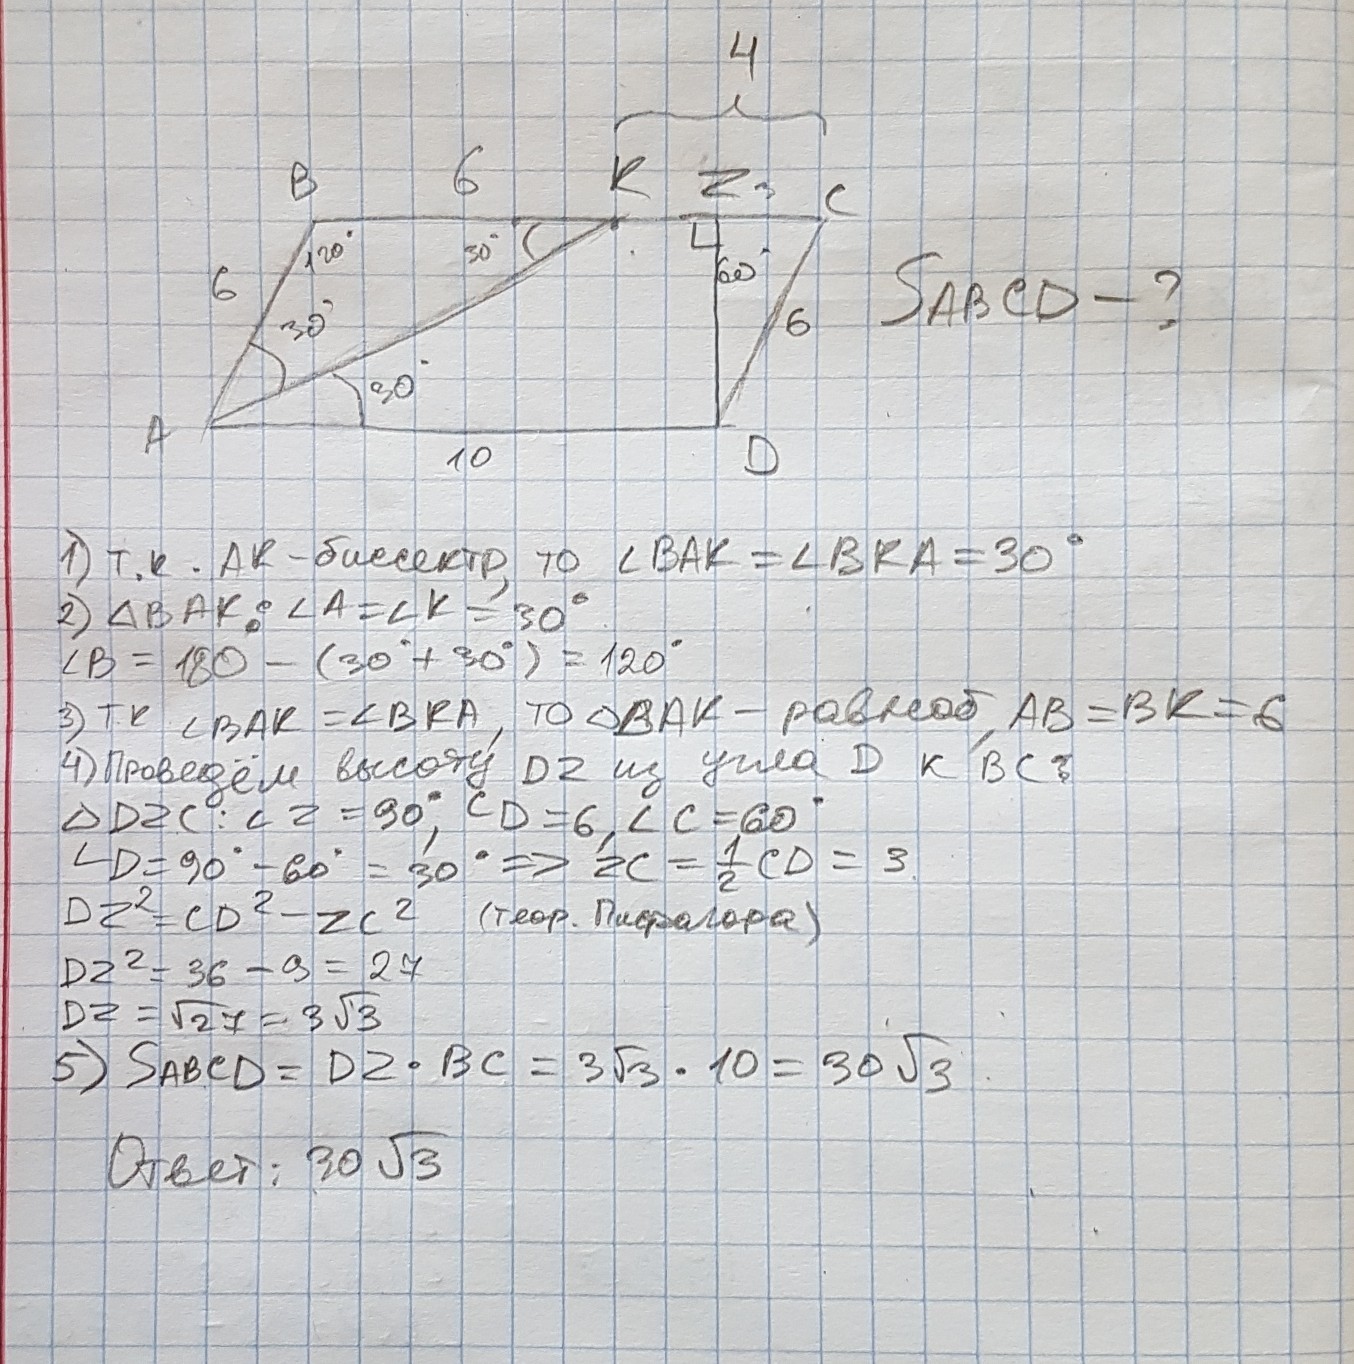 4
B 6 K Z 3 C
120° 30° 60°
6 30° 6 SABCD - ?
30°
A 10 D
1) Т.к. AK - биссектр, то ∠BAK = ∠BKA = 30°
2) △BAK: ∠A = ∠K = 30°
∠B = 180 - (30° + 30°) = 120°
3) Т.к ∠BAK = ∠BKA, то △BAK - равноб, AB = BK = 6
4) Проведём высоту DZ из угла D к BC:
△DZC: ∠Z = 90°, CD = 6, ∠C = 60°
∠D = 90° - 60° = 30° => ZC = 1/2 CD = 3
DZ² = CD² - ZC² (теор. Пифагора)
DZ² = 36 - 9 = 27
DZ = √27 = 3√3
5) SABCD = DZ · BC = 3√3 · 10 = 30√3
Ответ: 30√3